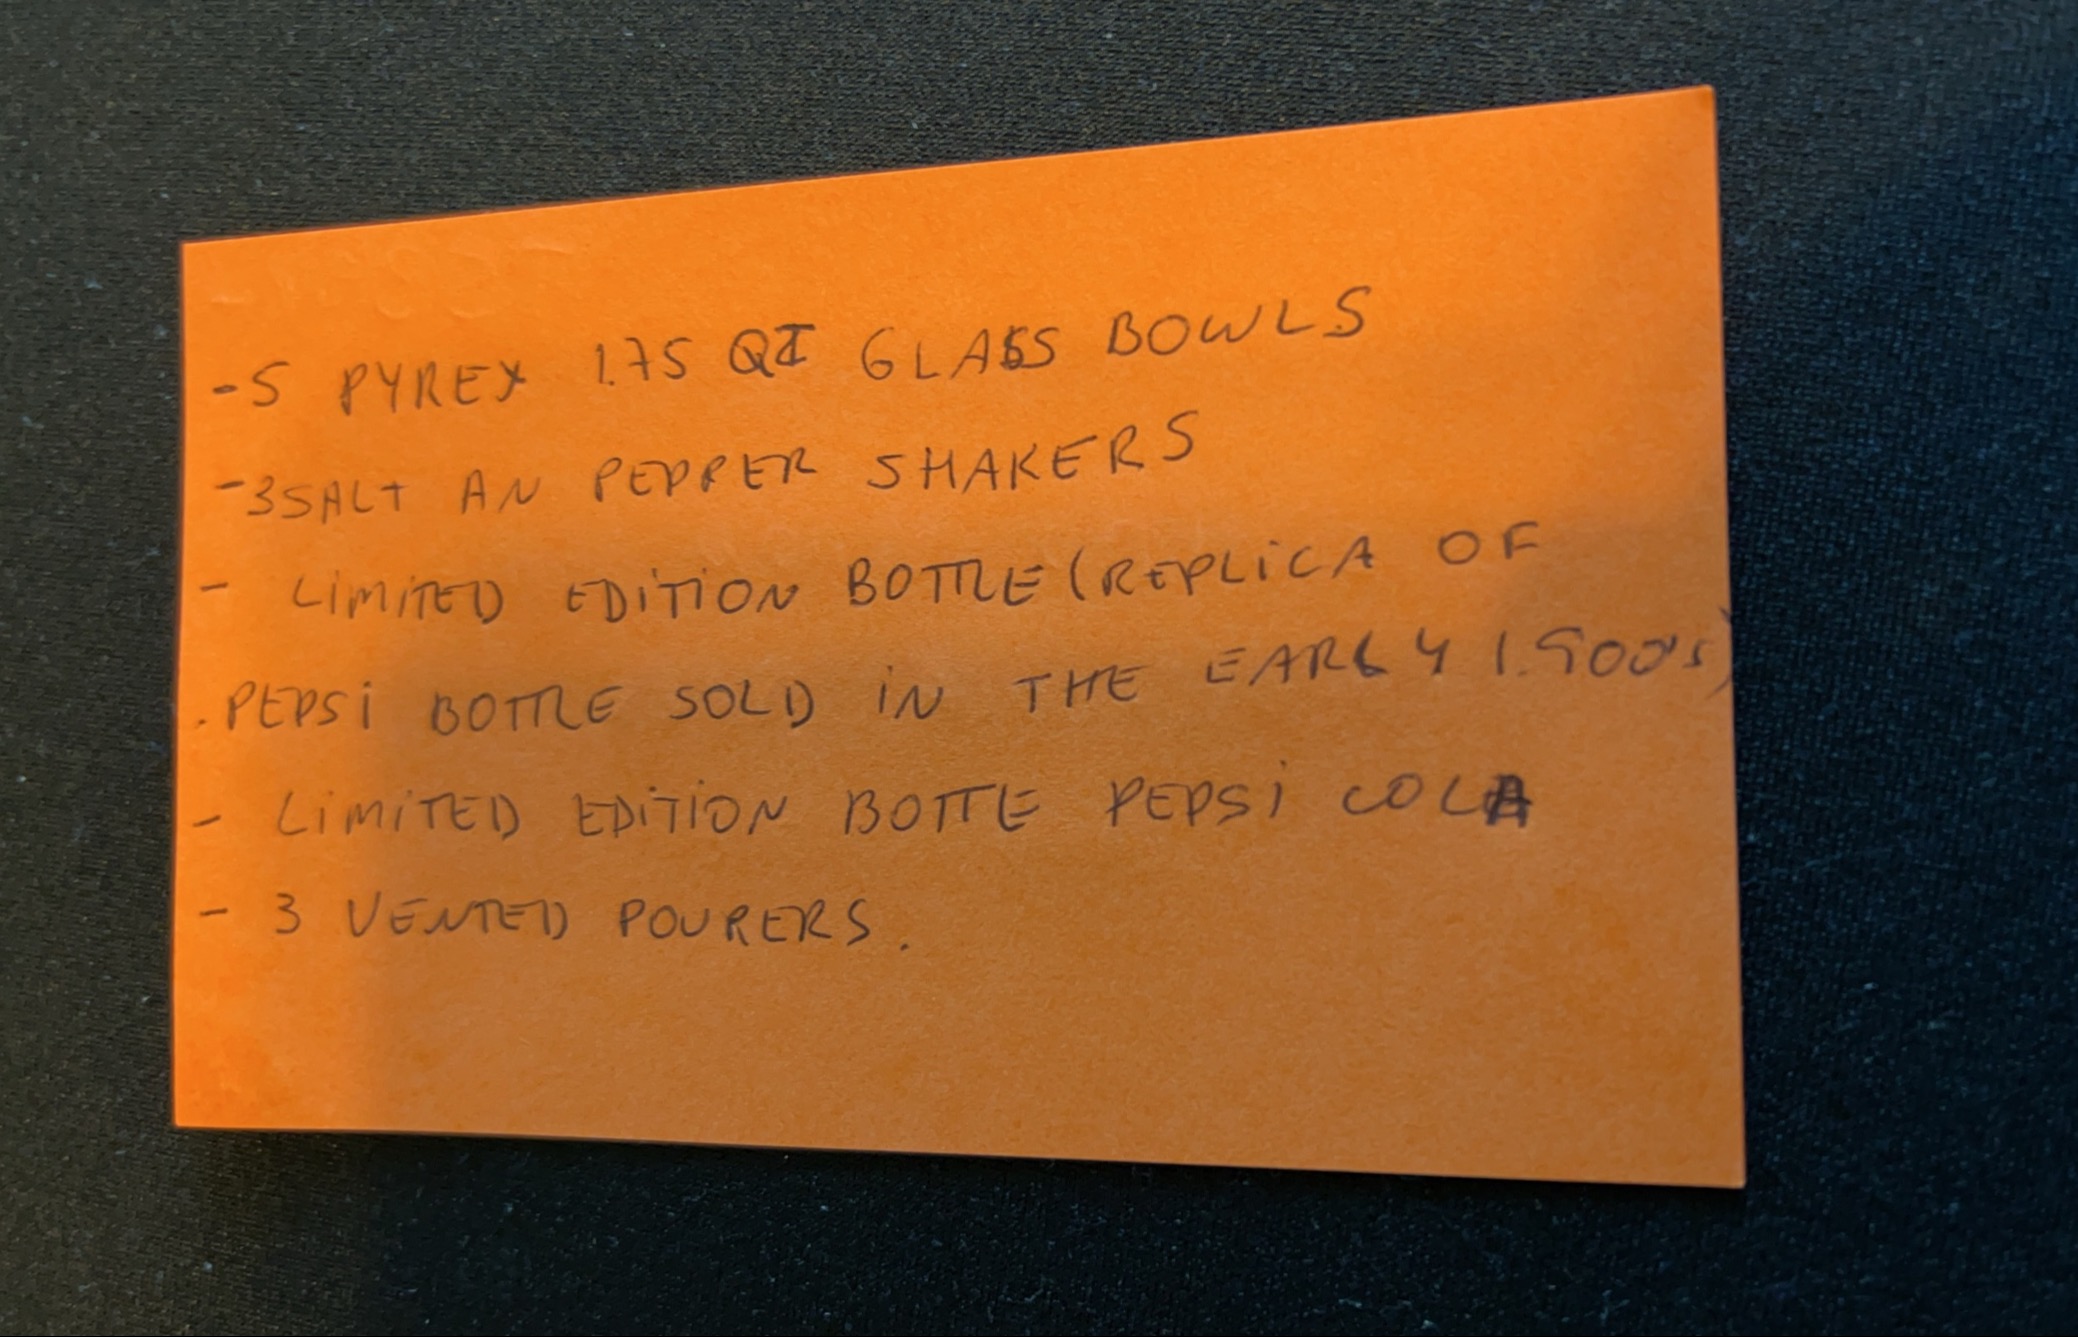 -5 PYREX 1.75 QT GLASS BOWLS
-3 SALT AN PEPPER SHAKERS
- LIMITED EDITION BOTTLE (REPLICA OF
.PEPSI BOTTLE SOLD IN THE EARLY 1.900's)
- LIMITED EDITION BOTTE PEPSI COLA
- 3 VENTED POURERS.